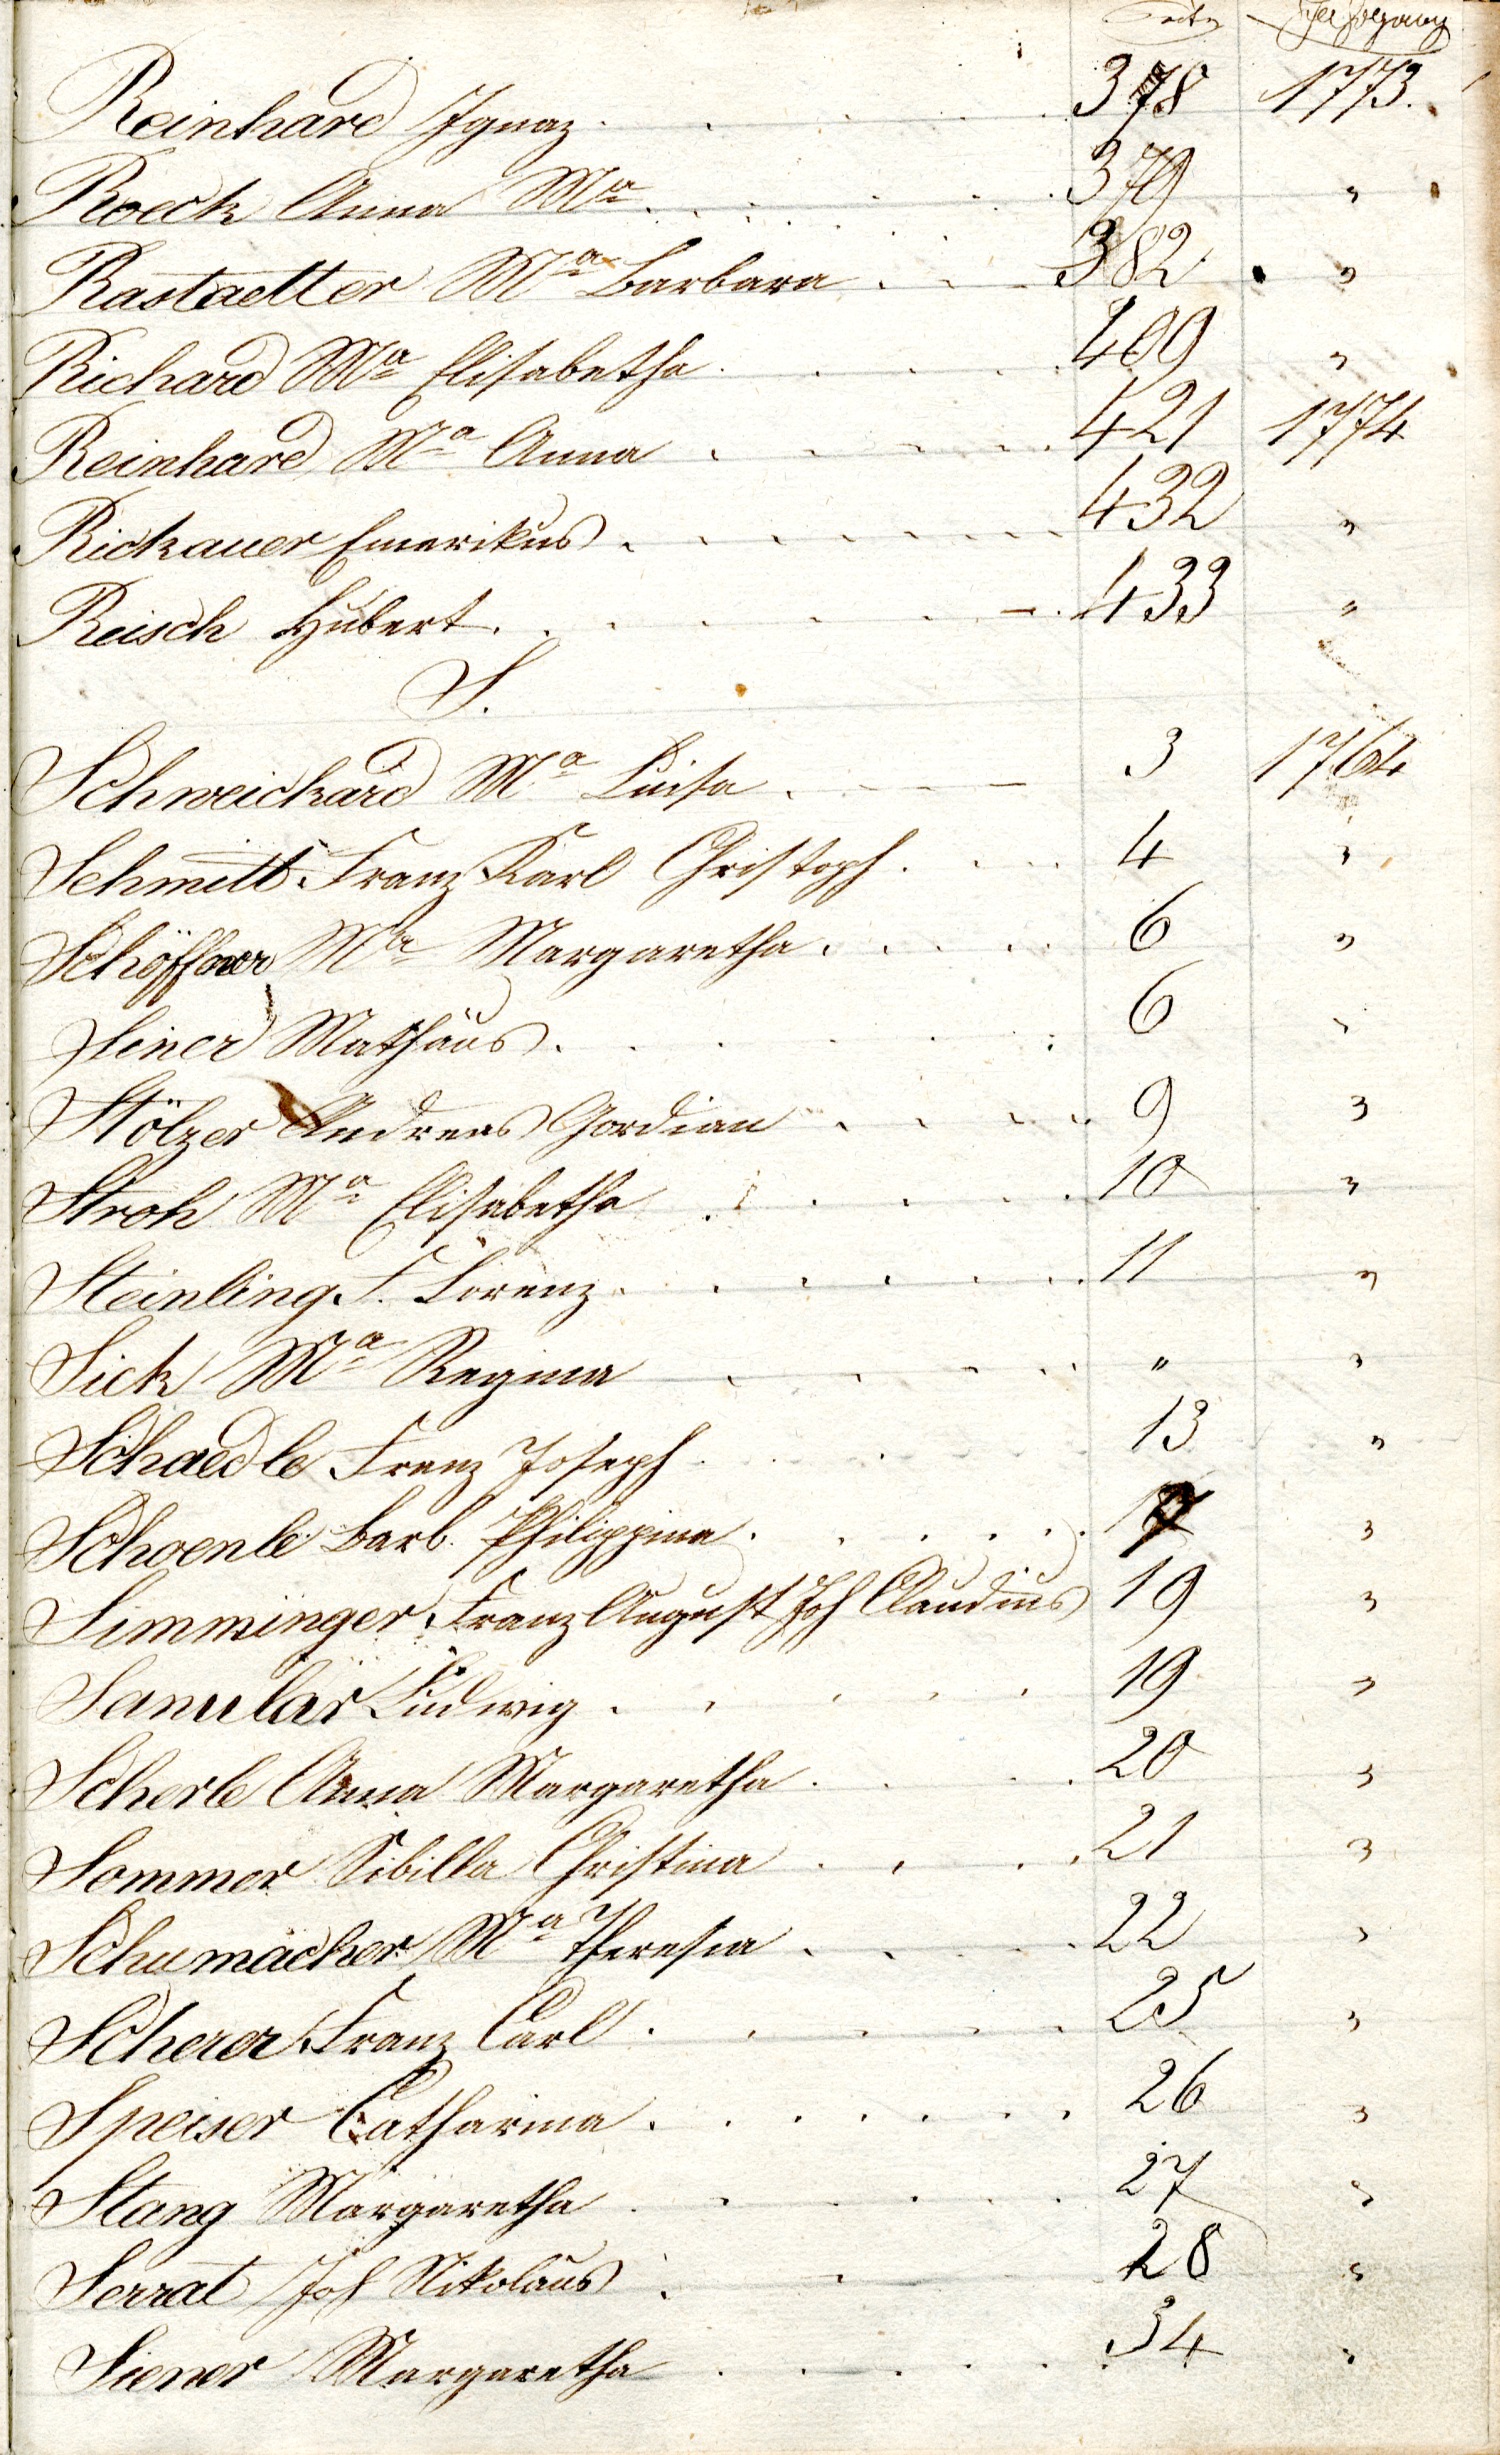 Seite Jahrgang
Reinhard Ignaz . . . . . 378 1773.
Roeck Anna Mª . . . . . 379 "
Rastaetter Mª Barbara . . . 382 "
Richard Mª Elisabetha . . . . . 409 "
Reinhard Mª Anna . . . . . 421 1774
Rickauer Emerikus . . . . . . . 432 "
Reisch Hubert . . . . . . . 433 "
S.
Schweickard Mª Luisa . . . . 3 1764
Schmitt Franz Karl Christoph . . . . 4 "
Schöffner Mª Margaretha . . . . . 6 "
Siner Mathäus . . . . . 6 "
Stölzer Andreas Gordian . . . . . 9 "
Stroh Mª Elisabetha . . . . . . 10 "
Steinling F. Lorenz . . . . . . 11 "
Sick Mª Regina . . . . . " "
Schaedle Franz Joseph . . . 13 "
Schoenle Barb. Philippina . . . . . "
Simminger Franz August Joh Claudius 19 "
Samular Ludwig . . . . . . 19 "
Scherle Anna Margaretha . . . . 20 "
Sommer Sibilla Christina . . . . 21 "
Schumacher Mª Theresia . . . . . 22 "
Scherer Franz Carl . . . . . . 25 "
Speiser Catharina . . . . . . . 26 "
Stang Margaretha . . . . . . 27 "
Serrat Joh Nikolaus . . . 28 "
Siener Margaretha . . . . . . 34 "